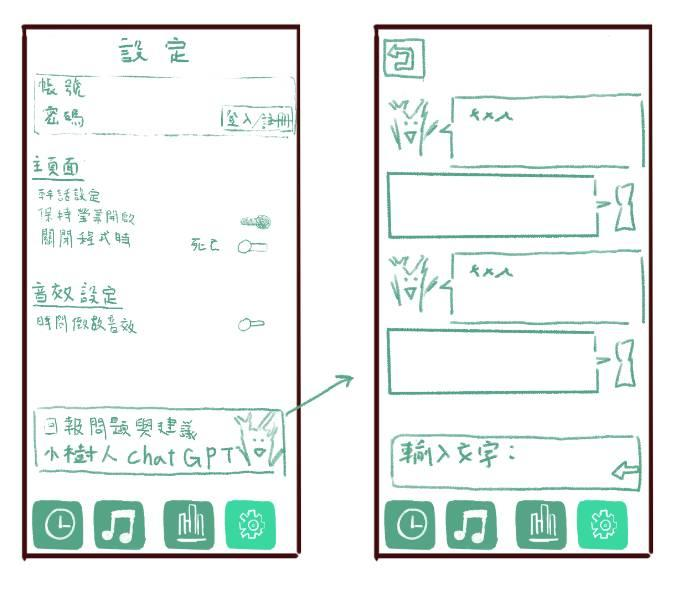 設定
帳號
密碼
登入/註冊
主頁面
對話設定
保持螢幕開啟
關閉程式時 死亡
音效設定
時間倒數音效
回報問題與建議
小樹人 chatGPT
輸入文字：